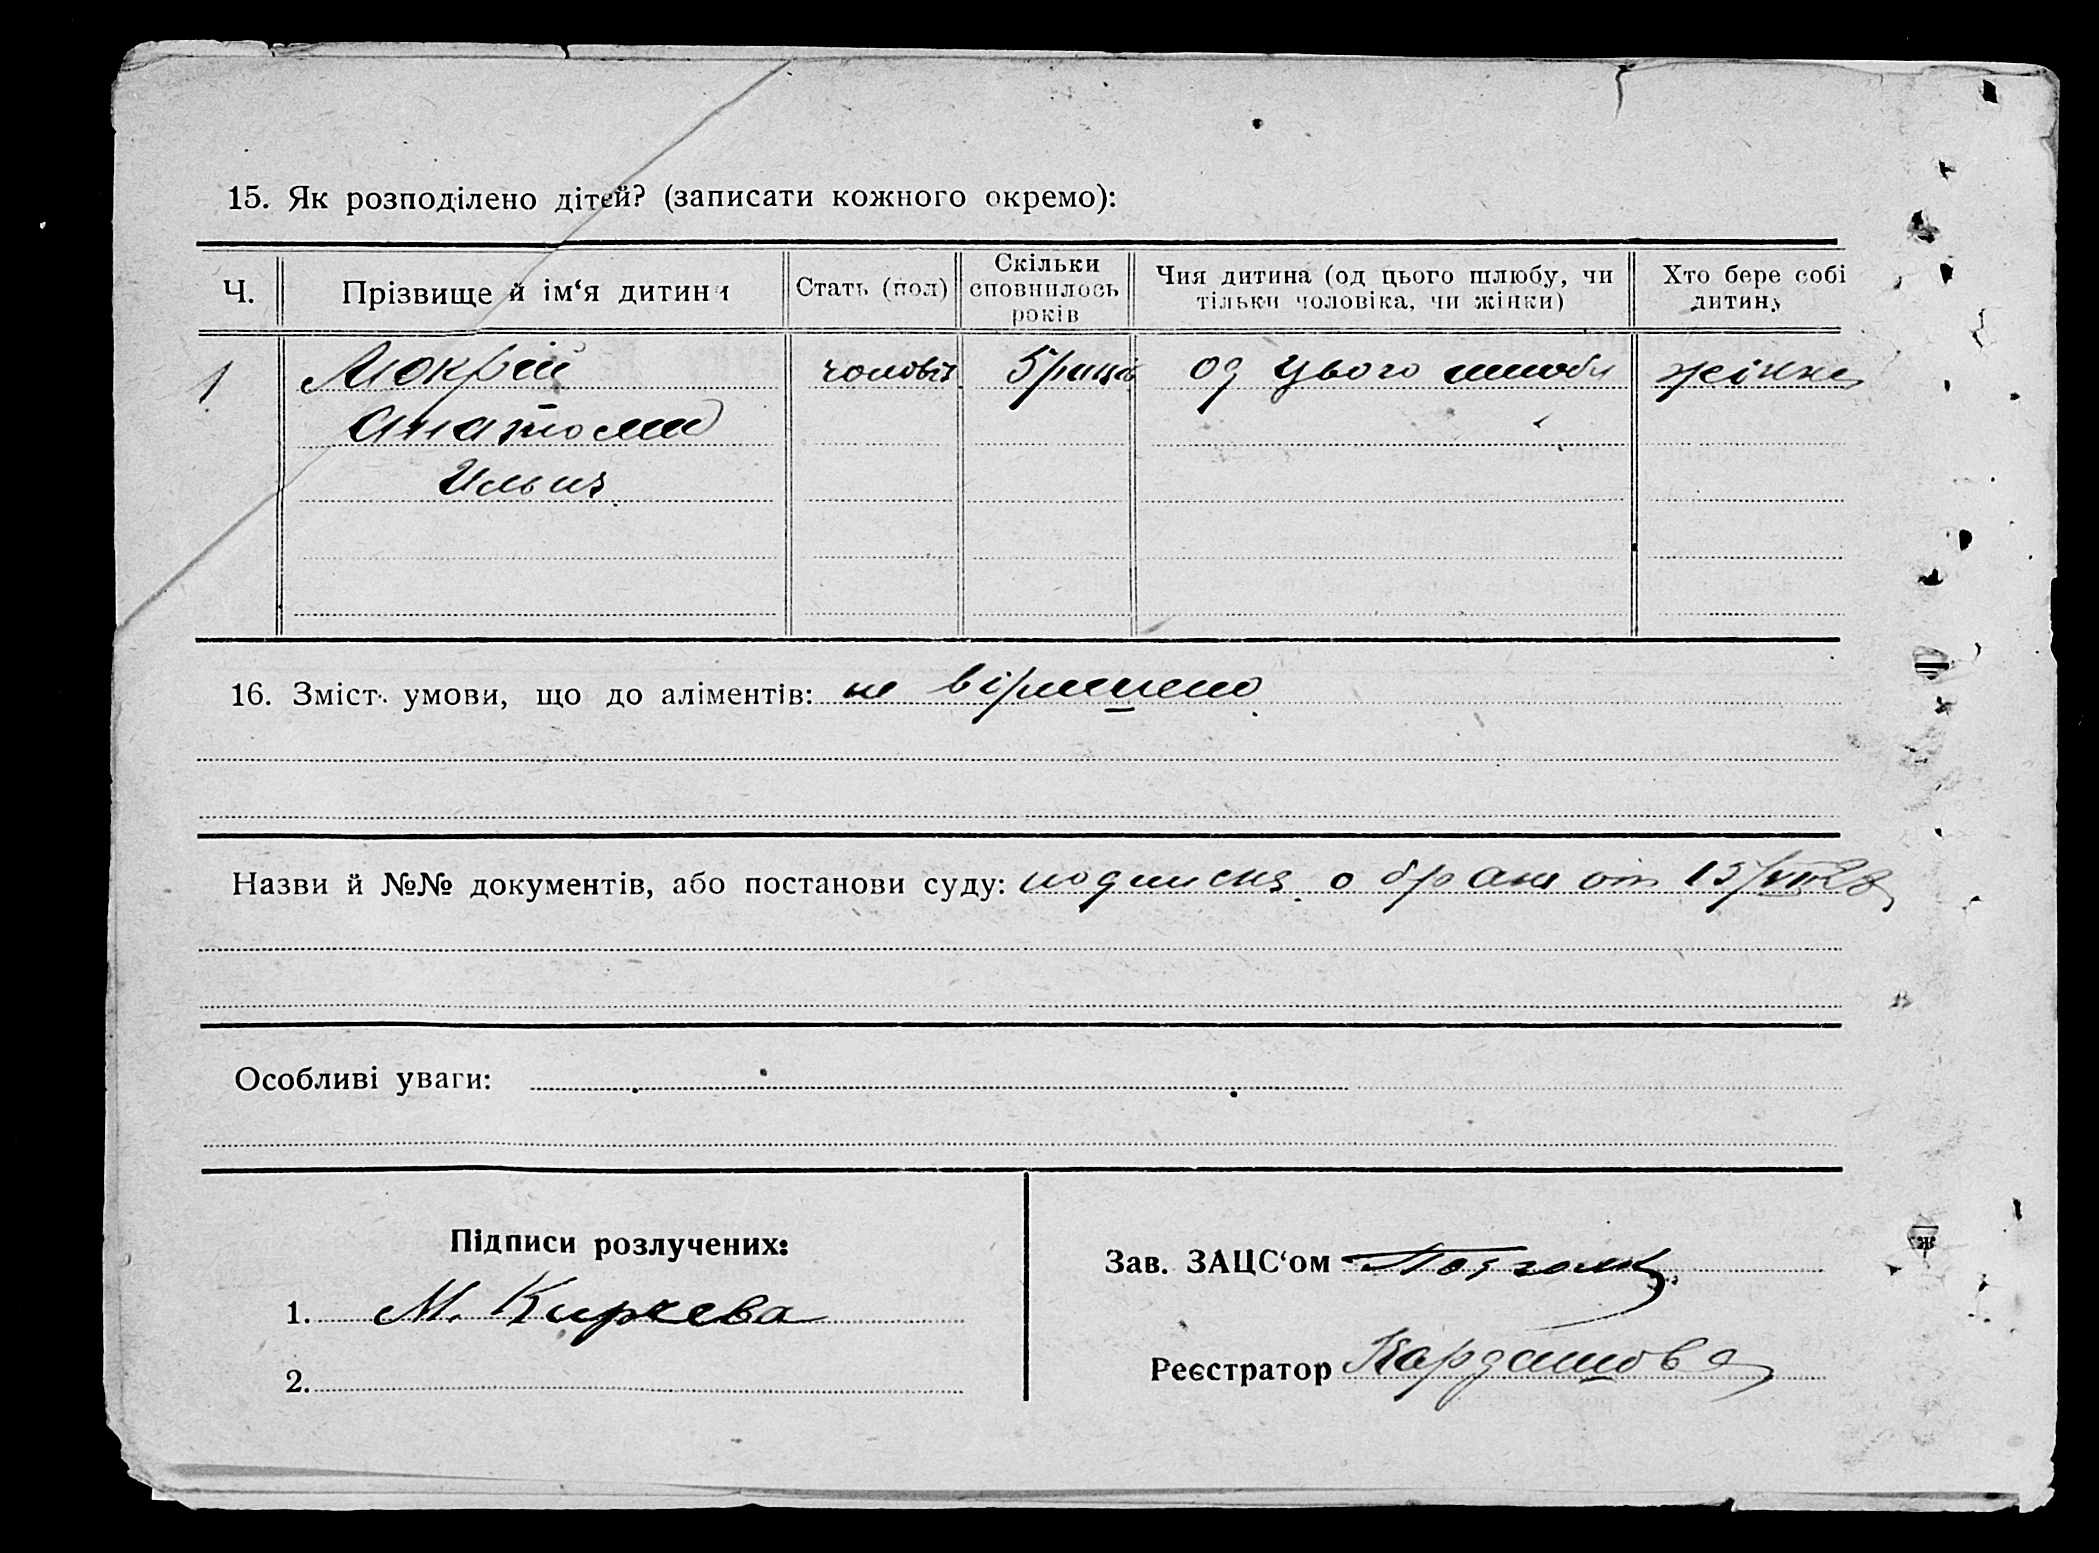 15. Як розподілено дітей? (записати кожного окремо):
Ч. Прізвище й ім‘я дитини Стать (пол) Скільки сповнилось років Чия дитина (од цього шлюбу, чи тільки чоловіка, чи жінки) Хто бере собі дитину
1 Мокрій чоловіч 5 років од цього шлюбу жінка
Анатолий
Ильич
16. Зміст умови, що до аліментів: не вірішено
Назви й №№ документів, або постанови суду: подписка о браке от 15/VII 28
Особливі уваги:
Підписи розлучених:
Зав. ЗАЦС‘ом
1. М. Киреева
Реєстратор Кардашова
2.